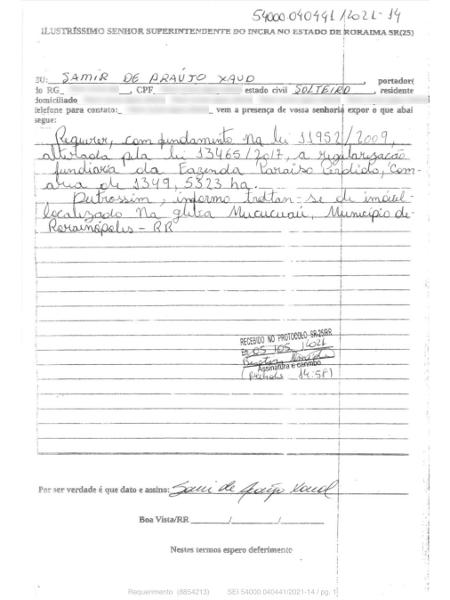 54000.040441/2021-14
ILUSTRÍSSIMO SENHOR SUPERINTENDENTE DO INCRA NO ESTADO DE RORAIMA SR(25)
EU: SAMIR DE ARAÚJO XAUD, portador
do RG , CPF estado civil SOLTEIRO, residente
domiciliado
telefone para contato: vem a presença de vossa senhoria expor o que abai
segue:
Requerer, com fundamento na lei 11952/2009,
alterada pla lei 13465/2017, a regularização
fundiária da Fazenda Paraíso Perdido, Com
área de 1349,5323 ha.
Outrossim, informo trattan-se de imóvel
localizado na gleba Mucucuaú, Município de
Rorainópolis - RR
RECEBIDO NO PROTOCOLO SR-25/RR
Em 05/05/2021
Assinatura e carimbo
14:58)
Por ser verdade é que dato e assino: de Araújo Xaud
Boa Vista/RR ______/______/______
Nestes termos espero deferimento
Requerimento (8854213) SEI 54000.040441/2021-14 / pg. 1